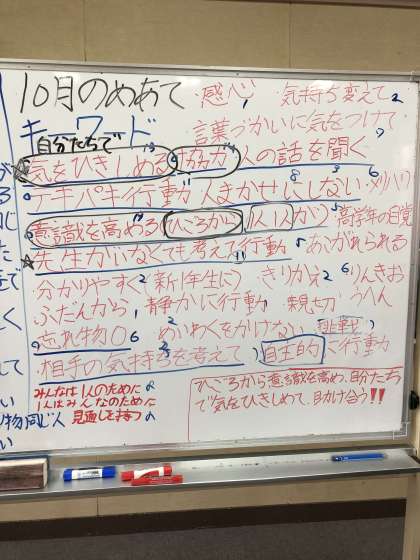 10月のめあて ・感心 1 気持ち変えて 2
キーワード 言葉づかいに気をつけて 7
自分たちで
気をひきしめる 13 協力 9 人の話を聞く
テキパキ行動 8 人まかせにしない 8 3 メリハリ 6
意識を高める ひごろから 1人1人が 高学年の自覚
☆先生がいなくても考えて行動 11 あこがれられる
分かりやすく 2 新1年生に) きりかえ 2 6 りんきおうへん
ふだんから 静かに行動 親切
忘れ物0 6 2 めいわくをかけない 挑戦
9 相手の気持ちを考えて 自主的に行動
みんなは1人のために
1人はみんなのために
見通しを持つ
ひごろから意識を高め、自分たち
で気をひきしめて、助け合う!!
物同じ人